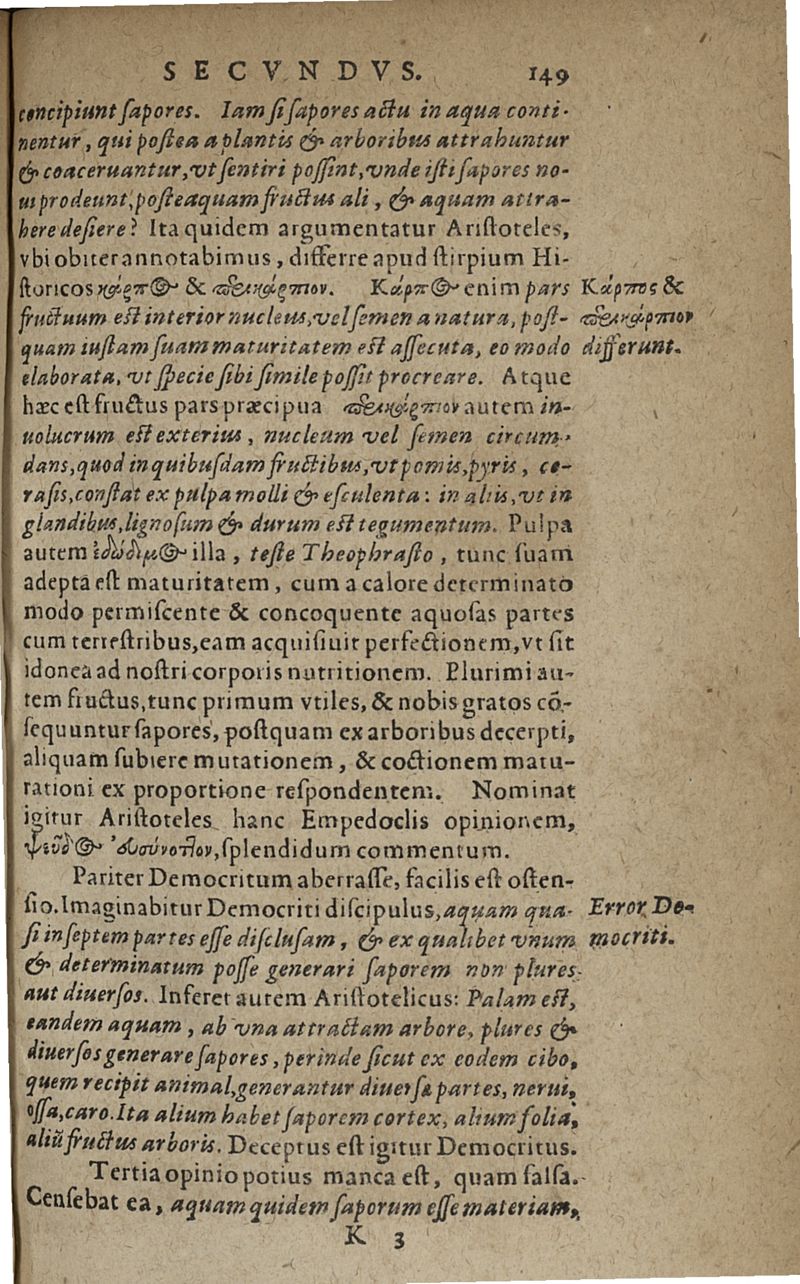 SECVNDVS. 149
concipiunt ſapores. Iam ſi ſapores actu in aqua conti-
nentur, qui poſtea a plantis & arboribus attrahuntur
& coaceruantur, vt ſentiri poſſint, vnde iſti ſapores no-
ui prodeunt, poſteaquam fructus ali, & aquam attra-
here deſiere? Ita quidem argumentatur Ariſtoteles,
vbi obiter annotabimus, differre apud ſtirpium Hi-
ſtoricos κάρπος & περικάρπιον. Κάρπος enim pars
fructuum eſt interior nucleus, vel ſemen a natura, poſt-
quam iuſtam ſuam maturitatem eſt aſſecuta, eo modo
elaborata, vt ſpecie ſibi ſimile poſſit procreare. Atque
hæc eſt fructus pars præcipua περικάρπιον autem in-
uolucrum eſt exterius, nucleum vel ſemen circum-
dans, quod in quibuſdam fructibus, vt pomis, pyris, ce-
raſis, conſtat ex pulpa molli & eſculenta: in aliis, vt in
glandibus, lignoſum & durum eſt tegumentum. Pulpa
autem ἐδώδιμος illa, teſte Theophraſto, tunc ſuam
adepta eſt maturitatem, cum a calore determinato
modo permiſcente & concoquente aquoſas partes
cum terreſtribus, eam acquiſiuit perfectionem, vt ſit
idonea ad noſtri corporis nutritionem. Plurimi au-
tem fructus, tunc primum vtiles, & nobis gratos cō-
ſequuntur ſapores, poſtquam ex arboribus decerpti,
aliquam ſubiere mutationem, & coctionem matu-
rationi ex proportione reſpondentem. Nominat
igitur Ariſtoteles hanc Empedoclis opinionem,
ψεῦδος εὐσύνοπτον, ſplendidum commentum.
Pariter Democritum aberraſſe, facilis eſt oſten-
ſio. Imaginabitur Democriti diſcipulus, aquam qua-
ſi in ſeptem partes eſſe diſcluſam, & ex qualibet vnum
& determinatum poſſe generari ſaporem non plures
aut diuerſos. Inferet autem Ariſtotelicus: Palam eſt,
eandem aquam, ab vna attractam arbore, plures &
diuerſos generare ſapores, perinde ſicut ex eodem cibo,
quem recipit animal, generantur diuerſæ partes, nerui,
oſſa, caro. Ita alium habet ſaporem cortex, alium folia,
aliū fructus arboris. Deceptus eſt igitur Democritus.
Tertia opinio potius manca eſt, quam falſa.
Cenſebat ea, aquam quidem ſaporum eſſe materiam,
K 3
Κάρπος &
περικάρπιον
differunt.
Error De-
mocriti.